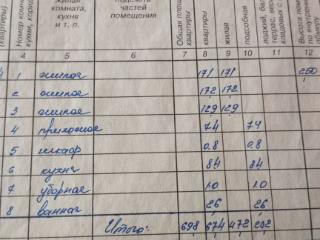 комната,
кухня
и т. п.
частей
помещения
Общая площ
квартиры
жилая
подсобная
Высота
5 6 7 8 9 10 11 12
1 жилая 17,1 17,1 250
2 жилая 17,2 17,2
3 жилая 12,9 12,9
4 прихожая 7.4 7.4
5 шкаф 0.8 0.8
6 кухня 8.4 8.4
7 уборная 1.0 1.0
8 ванная 2.6 2.6
Итого: 69,8 67,4 47,2 20,2